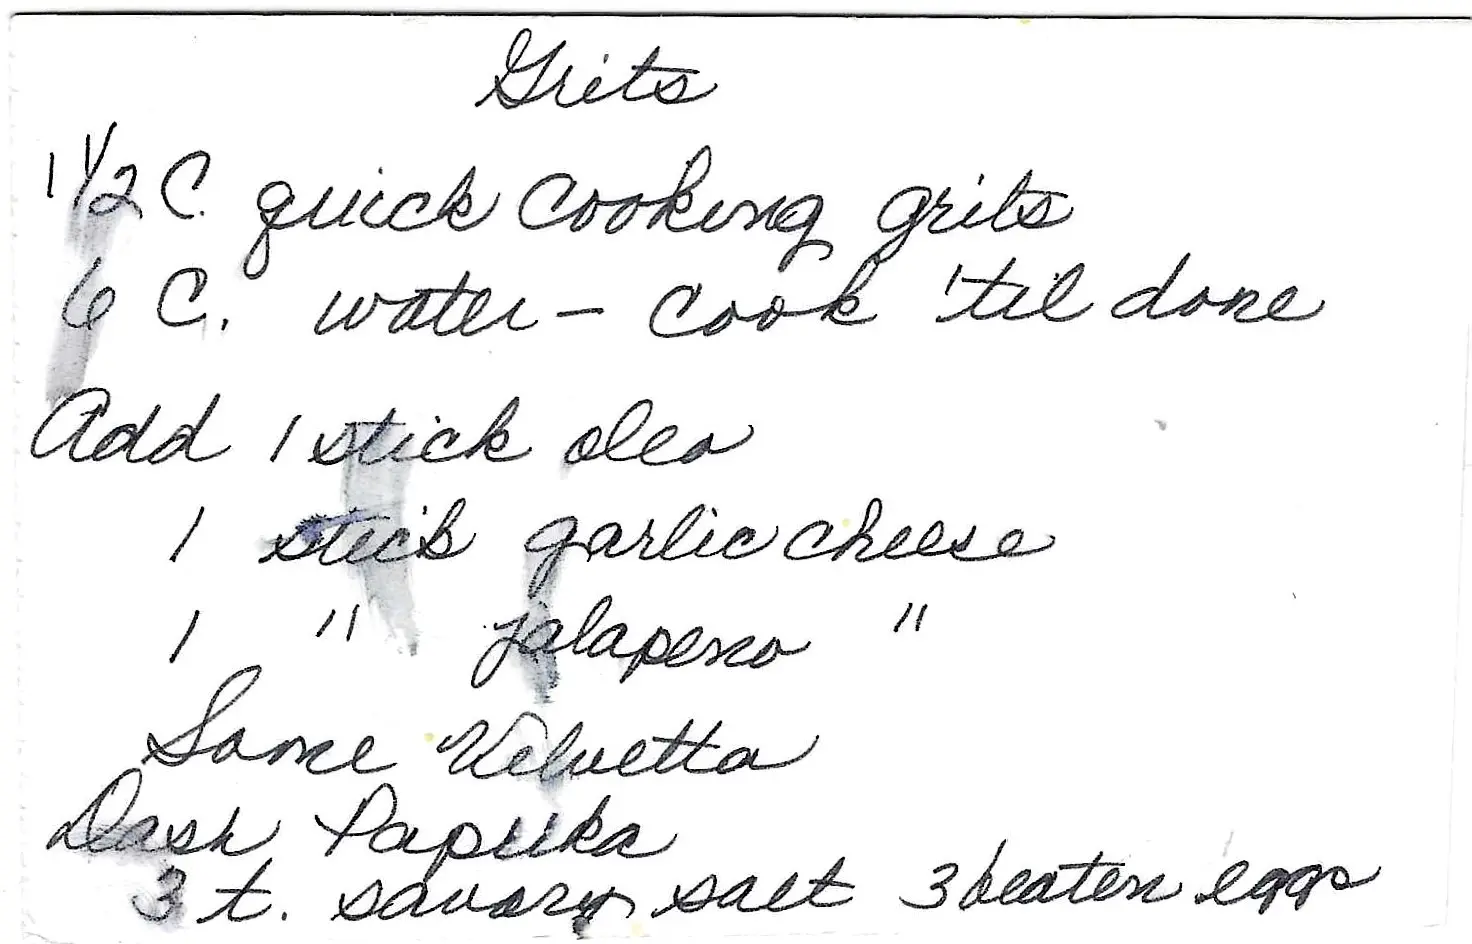 Grits
1 1/2 C. quick cooking grits
6 C. water - cook 'til done
Add 1 stick oleo
1 stick garlic cheese
1 " jalapeno "
Some Velvetta
Dash Paprika
3 t. savory salt 3 beaten eggs